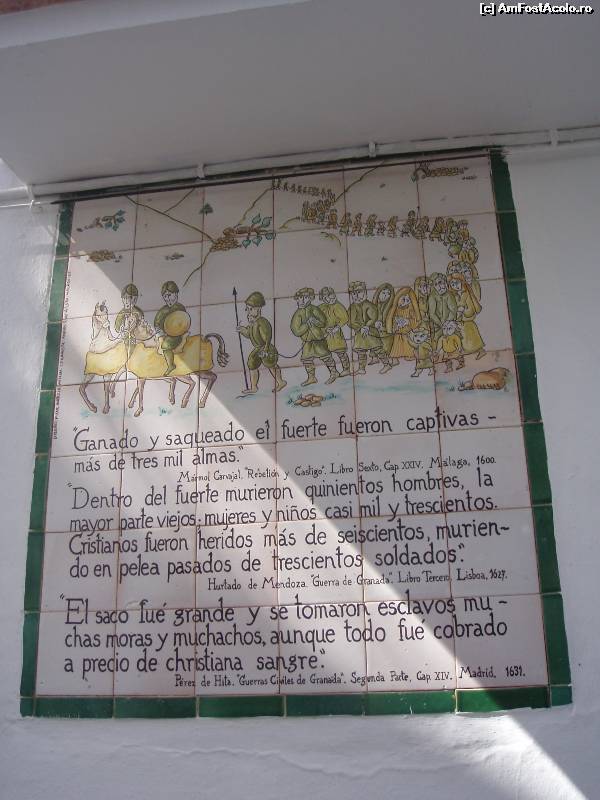 [c] AmFostAcolo.ro
"Ganado y saqueado el fuerte fueron captivas -
más de tres mil almas."
Mármol Carvajal. "Rebelión y Castigo". Libro Sexto, Cap. XXIV. Málaga, 1600.
"Dentro del fuerte murieron quinientos hombres, la
mayor parte viejos; mujeres y niños casi mil y trescientos.
Cristianos fueron heridos más de seiscientos, murien-
do en pelea pasados de trescientos soldados".
Hurtado de Mendoza. "Guerra de Granada". Libro Tercero. Lisboa, 1627.
"El saco fué grande y se tomaron esclavos mu-
chas moras y muchachos, aunque todo fué cobrado
a precio de christiana sangre".
Pérez de Hita. "Guerras Civiles de Granada". Segunda Parte, Cap. XIV. Madrid, 1631.